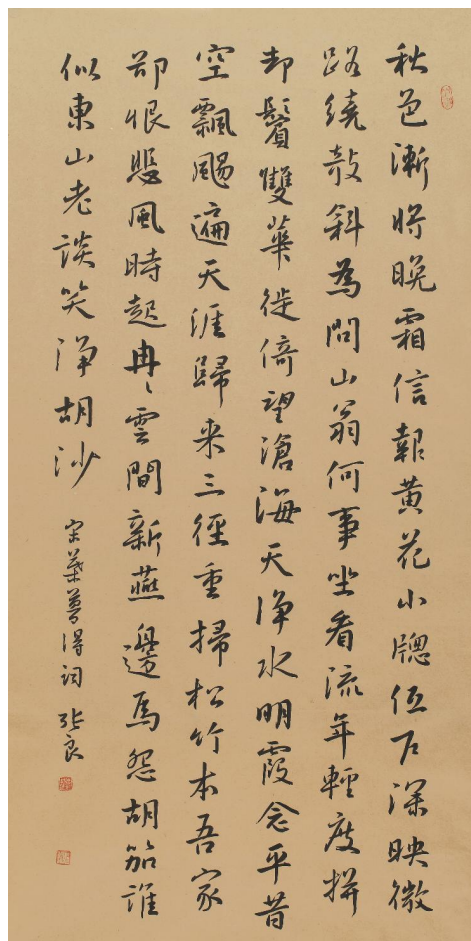 秋色漸將晚霜信報黄花小牕低户深映微
路繞敧斜為問山翁何事坐看流年輕度拼
却鬢雙華徙倚望滄海天浄水明霞念平昔
空飄颺遍天涯歸来三徑重掃松竹本吾家
却恨悲風時起冉々雲間新燕邊馬怨胡笳誰
似東山老談笑浄胡沙
宋葉夢得詞 張良